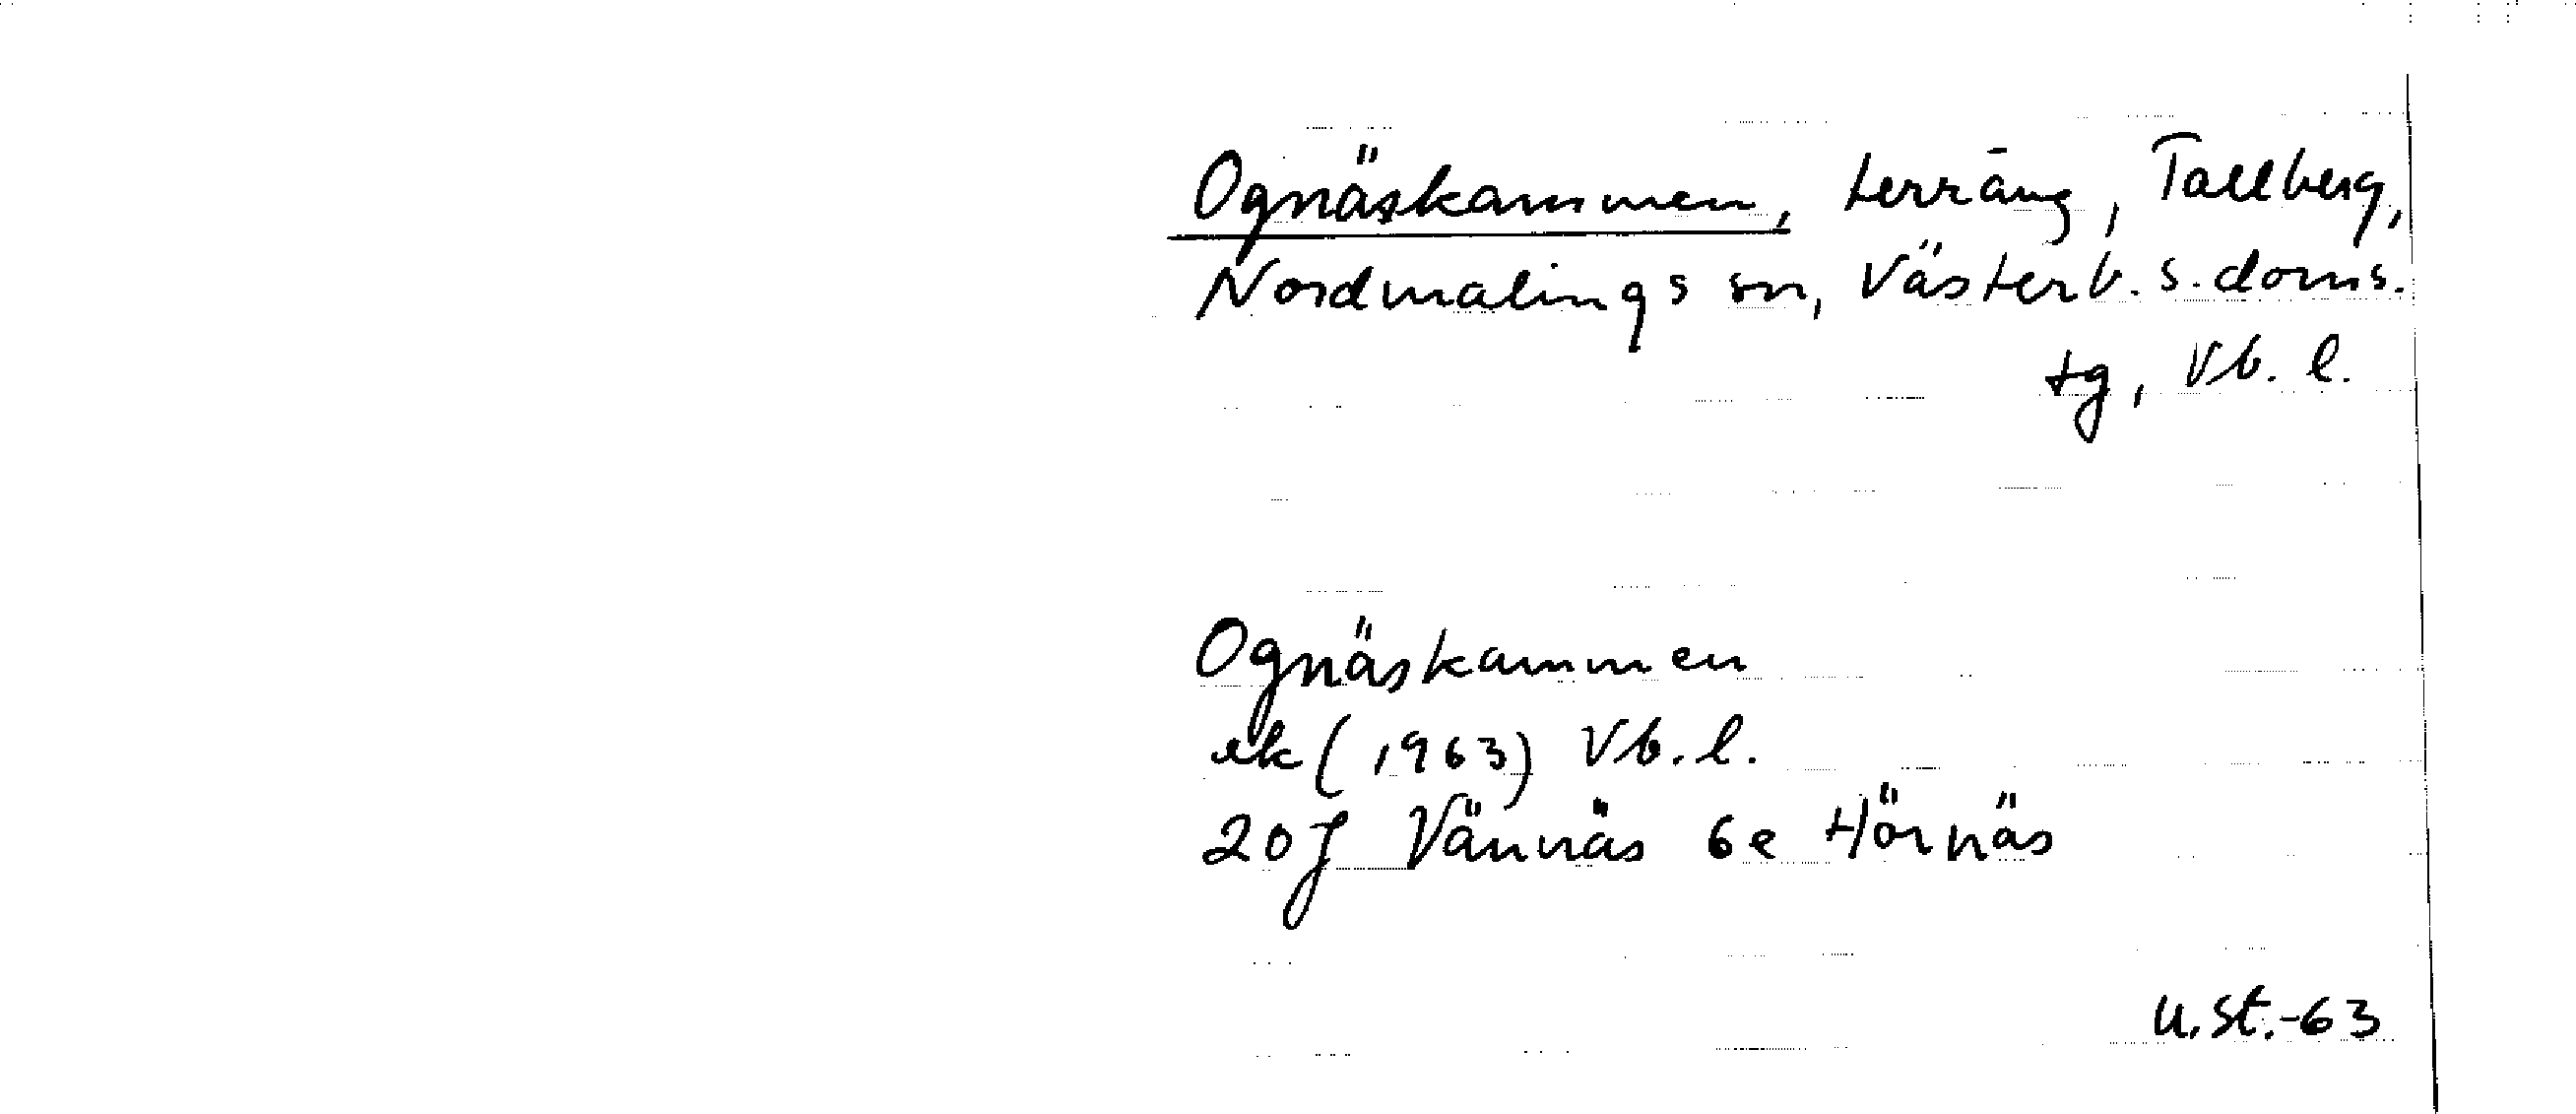 Ognäskammen, terräng, Tallberg,
Nordmalings sn, Västerb. s. doms.
tg, Vb. l.
Ognäskammen
ek (1963) Vb. l.
20J Vännäs 6e Hörnäs
U.St.-63